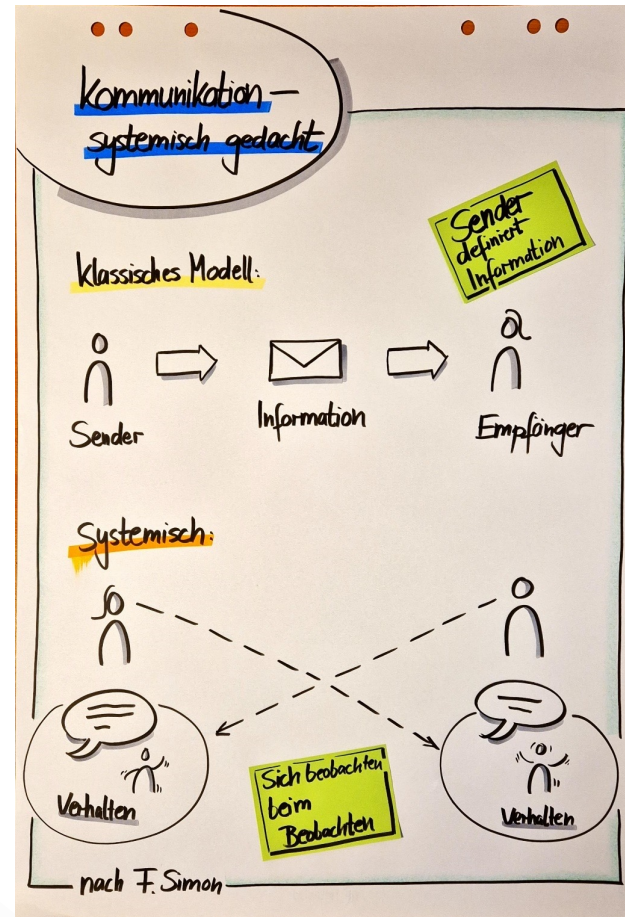 Kommunikation –
systemisch gedacht
Sender
definiert
Information
Klassisches Modell:
Sender
Information
Empfänger
Systemisch:
Verhalten
Sich beobachten
beim
Beobachten
Verhalten
nach F. Simon